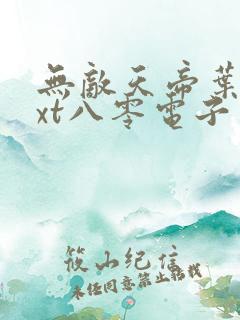 無敵天帝葉
xt八零電子
筱山纪信
未经同意禁止转载